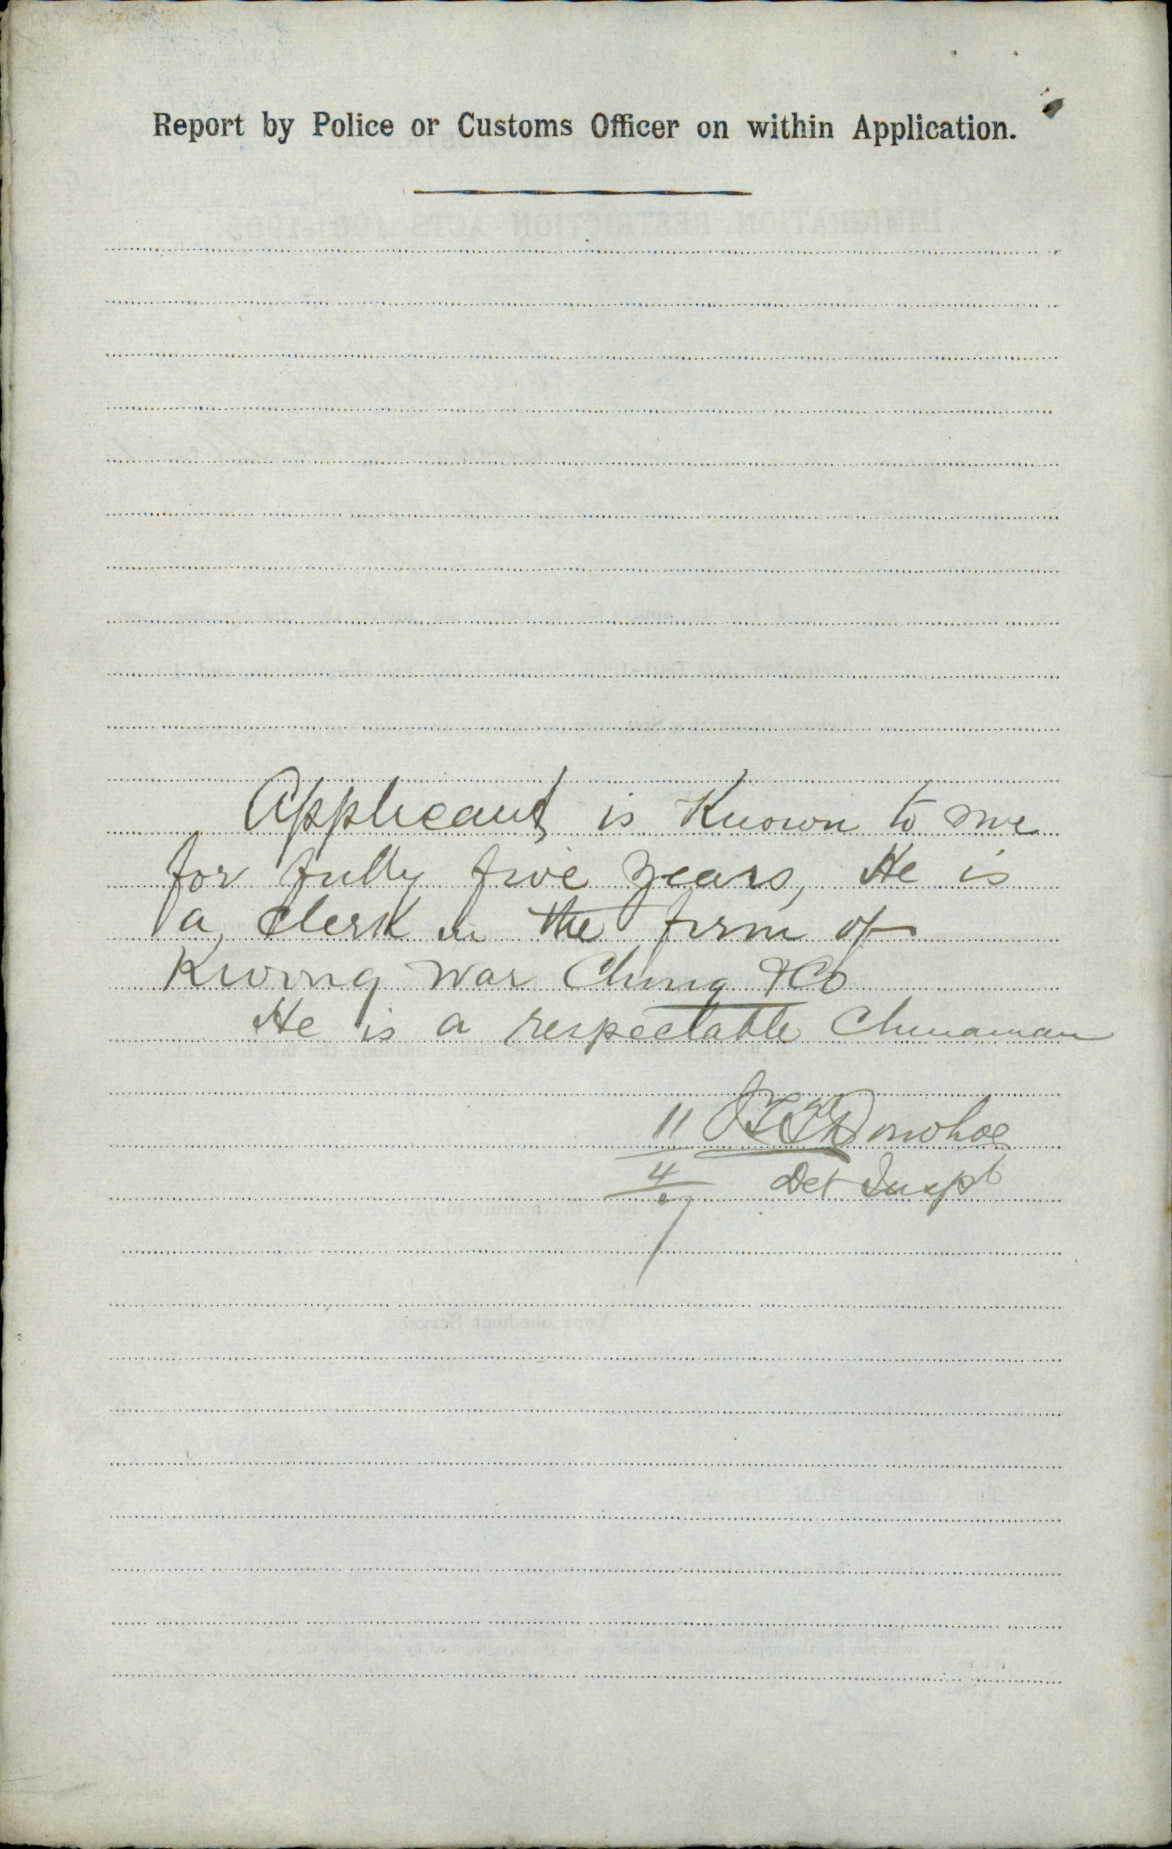 Report by Police or Customs Officer on within Application.
Applicant is Known to me
for fully five years, He is
a Clerk in the firm of
Kwong War Chong & Co
He is a respectable Chinaman
11 Donohoe
4 Det Inspt
7